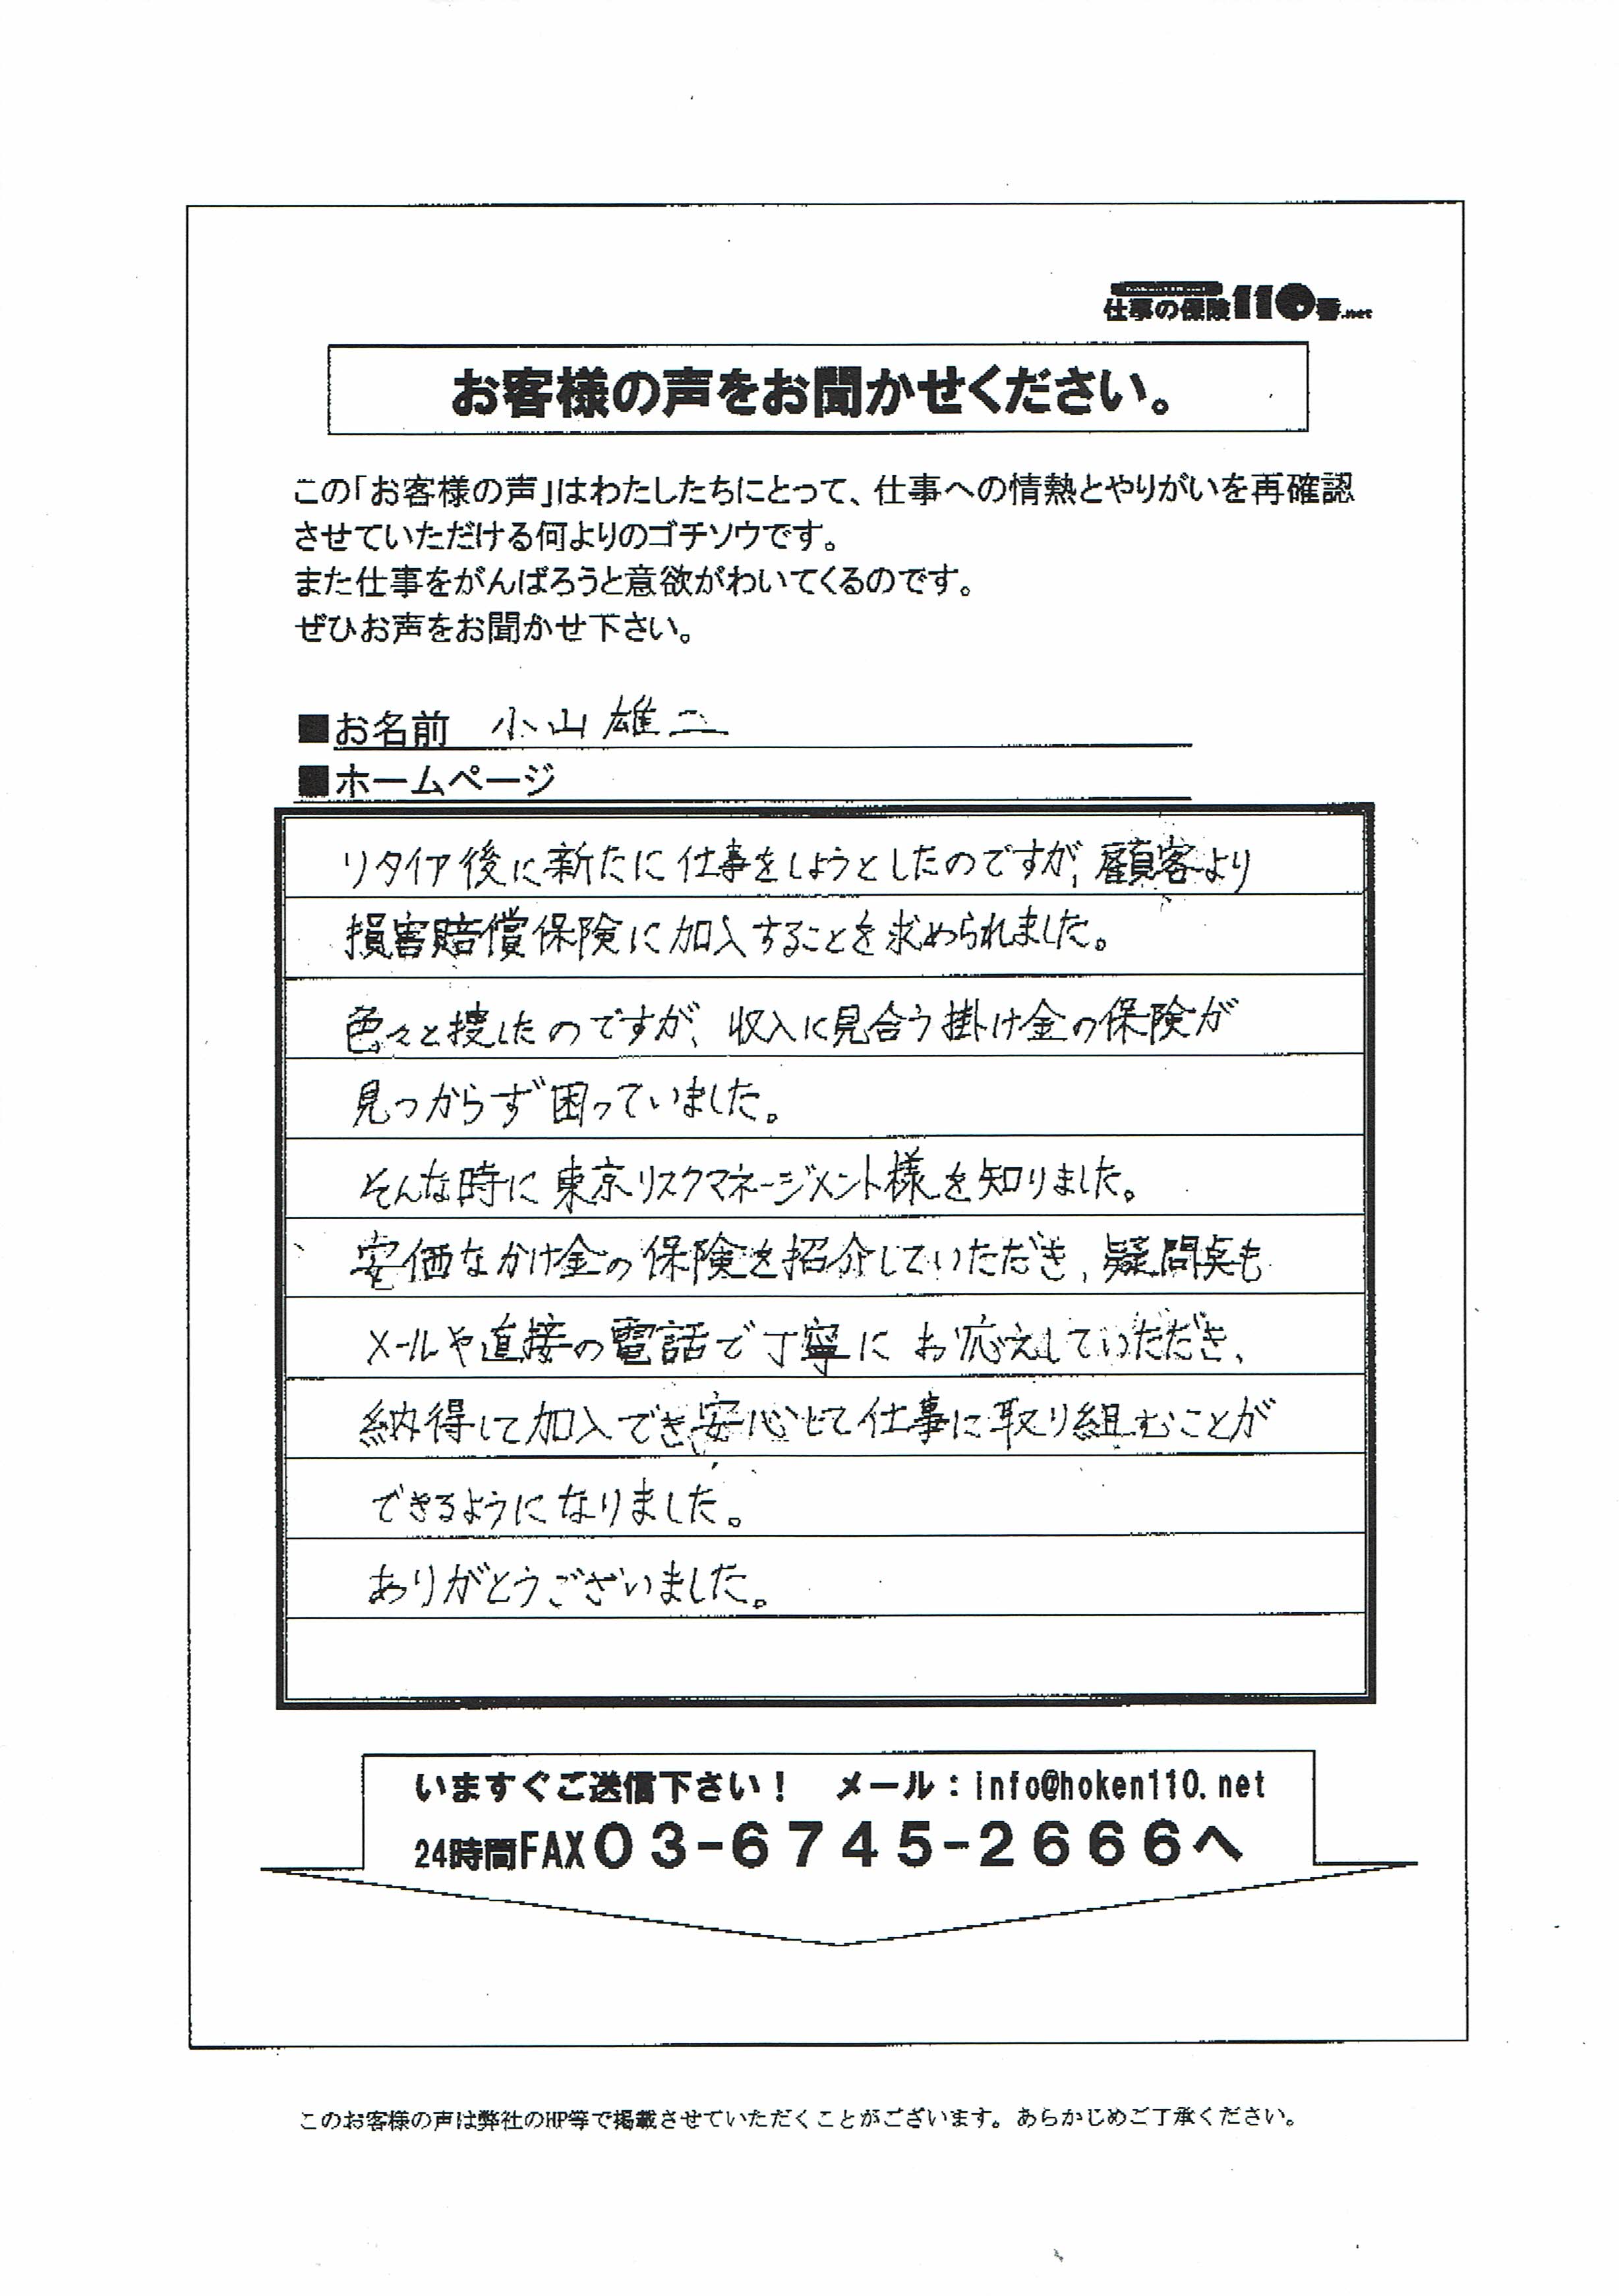 仕事の保険110番.net
お客様の声をお聞かせください。
この「お客様の声」はわたしたちにとって、仕事への情熱とやりがいを再確認
させていただける何よりのゴチソウです。
また仕事をがんばろうと意欲がわいてくるのです。
ぜひお声をお聞かせ下さい。
■お名前 小山 雄二
■ホームページ
リタイア後に新たに仕事をしようとしたのですが、顧客より
損害賠償保険に加入することを求められました。
色々と捜したのですが、収入に見合う掛け金の保険が
見つからず困っていました。
そんな時に東京リスクマネージメント様を知りました。
安価なかけ金の保険を紹介していただき、疑問点も
メールや直接の電話で丁寧にお応えしていただき、
納得して加入でき、安心して仕事に取り組むことが
できるようになりました。
ありがとうございました。
いますぐご送信下さい！ メール：info@hoken110.net
24時間FAX03-6745-2666へ
このお客様の声は弊社のHP等で掲載させていただくことがございます。あらかじめご了承ください。